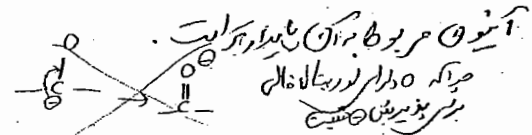 آنیون مربوط به آن پایدارتر است.
چرا که O دارای اوربیتال خالی
برای پذیرش ⊖ نیست
O
C
⊖
→
O ⊖
C